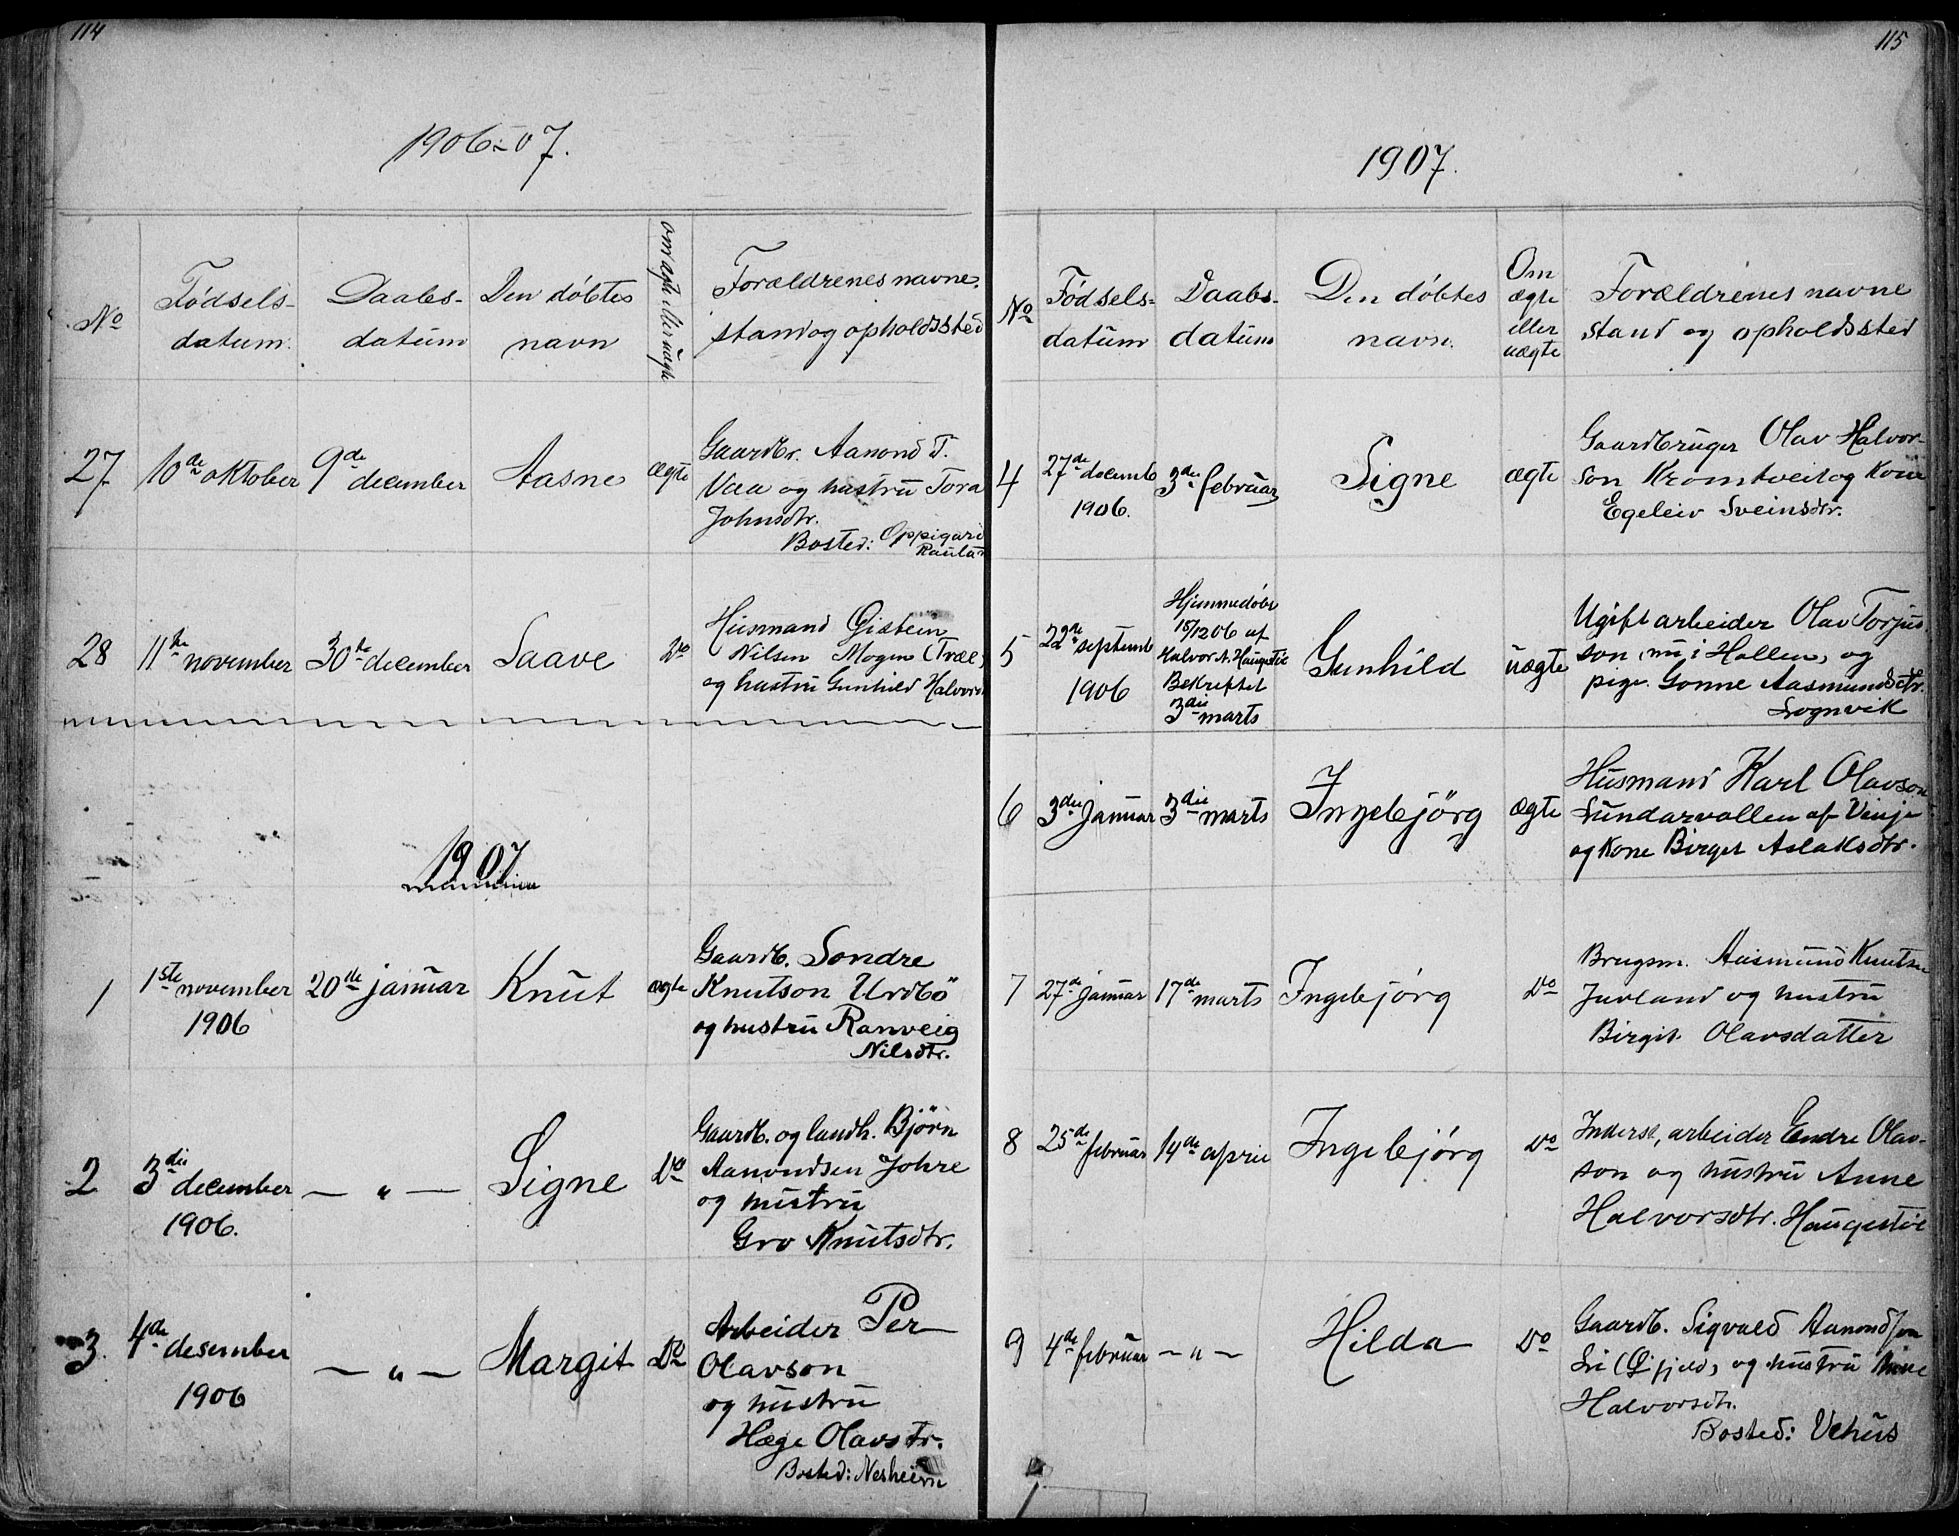 114
1906-07.
No
Fødsels-
datum.
Daabs-
datum
Den døbtes
navn
om ægte eller uægte
Forældrenes navne,
stand og opholdssted
27
10de oktober
9de
december
Aasne
ægte
Gaardbr. Aanond T.
Vaa og hustru Tora
Johnsdtr.
Bosted: Oppigard
Rauland
28
11te november
30te december
Saave
Do
Husmand Gistein
Nilsen Mogen (Træe)
og hustru Gunhild Halvors
1907
1
1ste november
1906
20de januar
Knut
ægte
Gaardb. Sondre
Knutson Urdbö
og hustru Ranveig
Nilsdtr.
2
3die
december
1906.
— " —
Signe
Do
Gaardb. og landh. Bjørn
Aanondsen Johre
og hustru
Gro Knutsdtr.
3.
4de desember
1906
— " —
Margit
Do
Arbeider Per
Olavson
og hustru
Hæge Olavsdtr.
Bosted: Nesheim
115
1907.
No
Fødsels-
datum
Daabs-
datum
Den døbtes
navn.
Om
ægte
eller
uægte
Forældrenes navne
stand og opholdssted
4
27de decemb
1906.
3die februar
Signe
ægte
Gaardbruger Olav Halvor-
son Kromtveit og Kone
Egeleiv Sveinsdtr.
5
22de septemb
1906
Hjemmedøbt
15/12 06 af
Halvor A. Haugestøl
Bekreftet
3die
marts
Gunhild
uægte
Ugift arbeider Olav Torjus-
son, nu i Hollen, og
pige Gonne Aasmundsdtr.
Lognvik
6
3die januar
3die
marts
Ingebjörg
ægte
Husmand Karl Olavson
Sundarvollen af Vinje
og Kone Birget Aslaksdtr.
7
27de januar
17de marts
Ingebjørg
Do
Brugsm. Aasmund Knutsen
Juvland og hustru
Birgit Olavsdatter
8
25de februar
14de april
Ingebjørg
Do
Inderst, arbeider Endre Olav-
son og hustru Anne
Halvorsdtr. Haugestøl
9
4de februar
— " —
Hilda
Do
Gaardb. Sigvald Aanondsen
Li (Lifjeld) og hustru
Halvorsdtr.
Bosted: Vehus